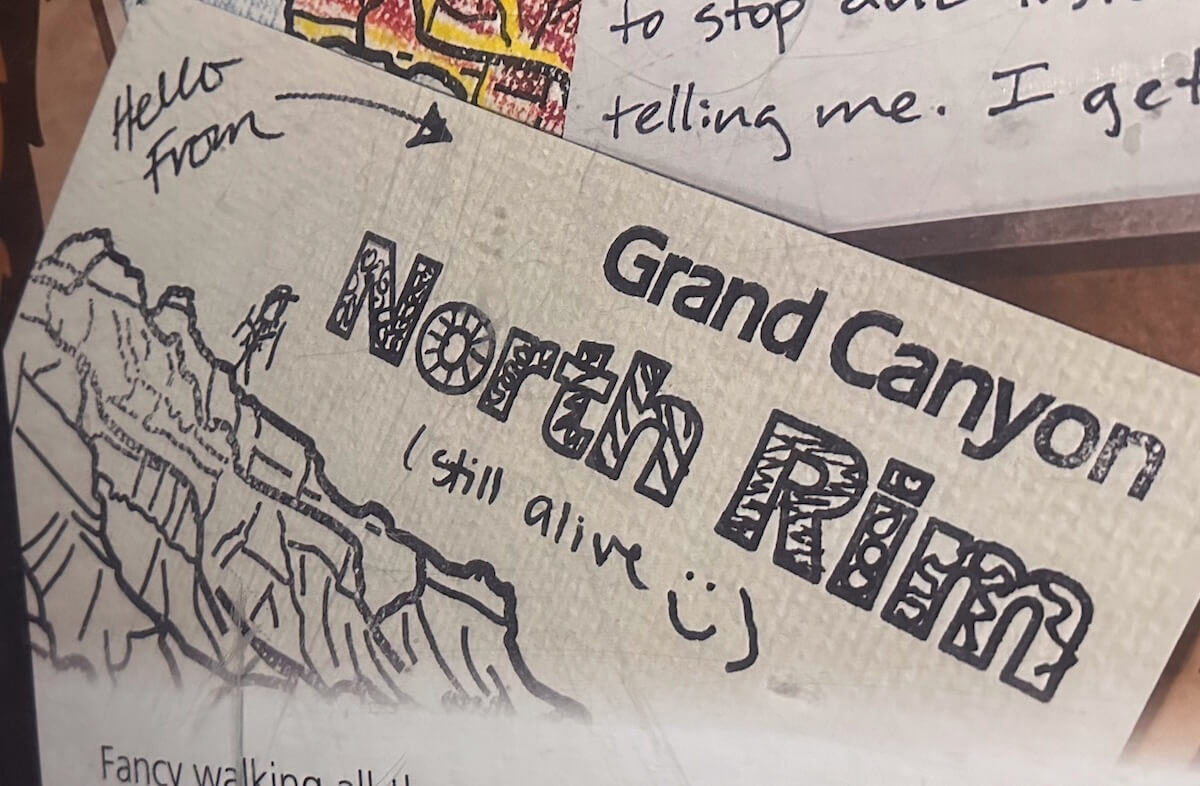 to stop
telling me. I get
Hello
From
Grand Canyon
North Rim
(still alive :)
Fancy walking all